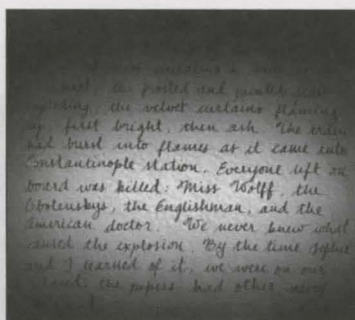 heat, the frosted and painted
the velvet curtains flaming
up, first bright, then ash. The train
had burst into flames as it came into
Constantinople station. Everyone left on
board was killed: Miss Wolff, the
Obolenskys, the Englishman, and the
American doctor. We never knew what
caused the explosion. By the time
and I learned of it, we were on our
the papers had other news